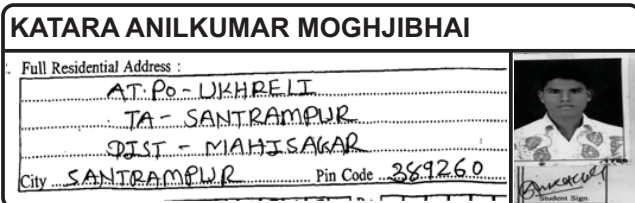 KATARA ANILKUMAR MOGHJIBHAI
Full Residential Address :
AT. PO - UKHRELI
TA - SANTRAMPUR
DIST - MAHISAGAR
City SANTRAMPUR Pin Code 389260
Student Sign.